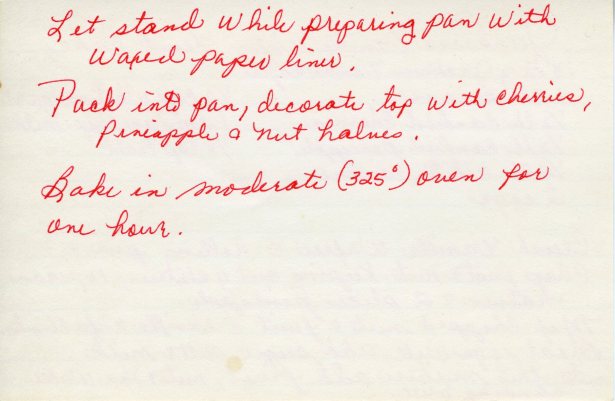 Let stand while preparing pan with
waxed paper liner.
Pack into pan, decorate top with cherries,
Pineapple & nut halves.
Bake in moderate (325°) oven for
one hour.